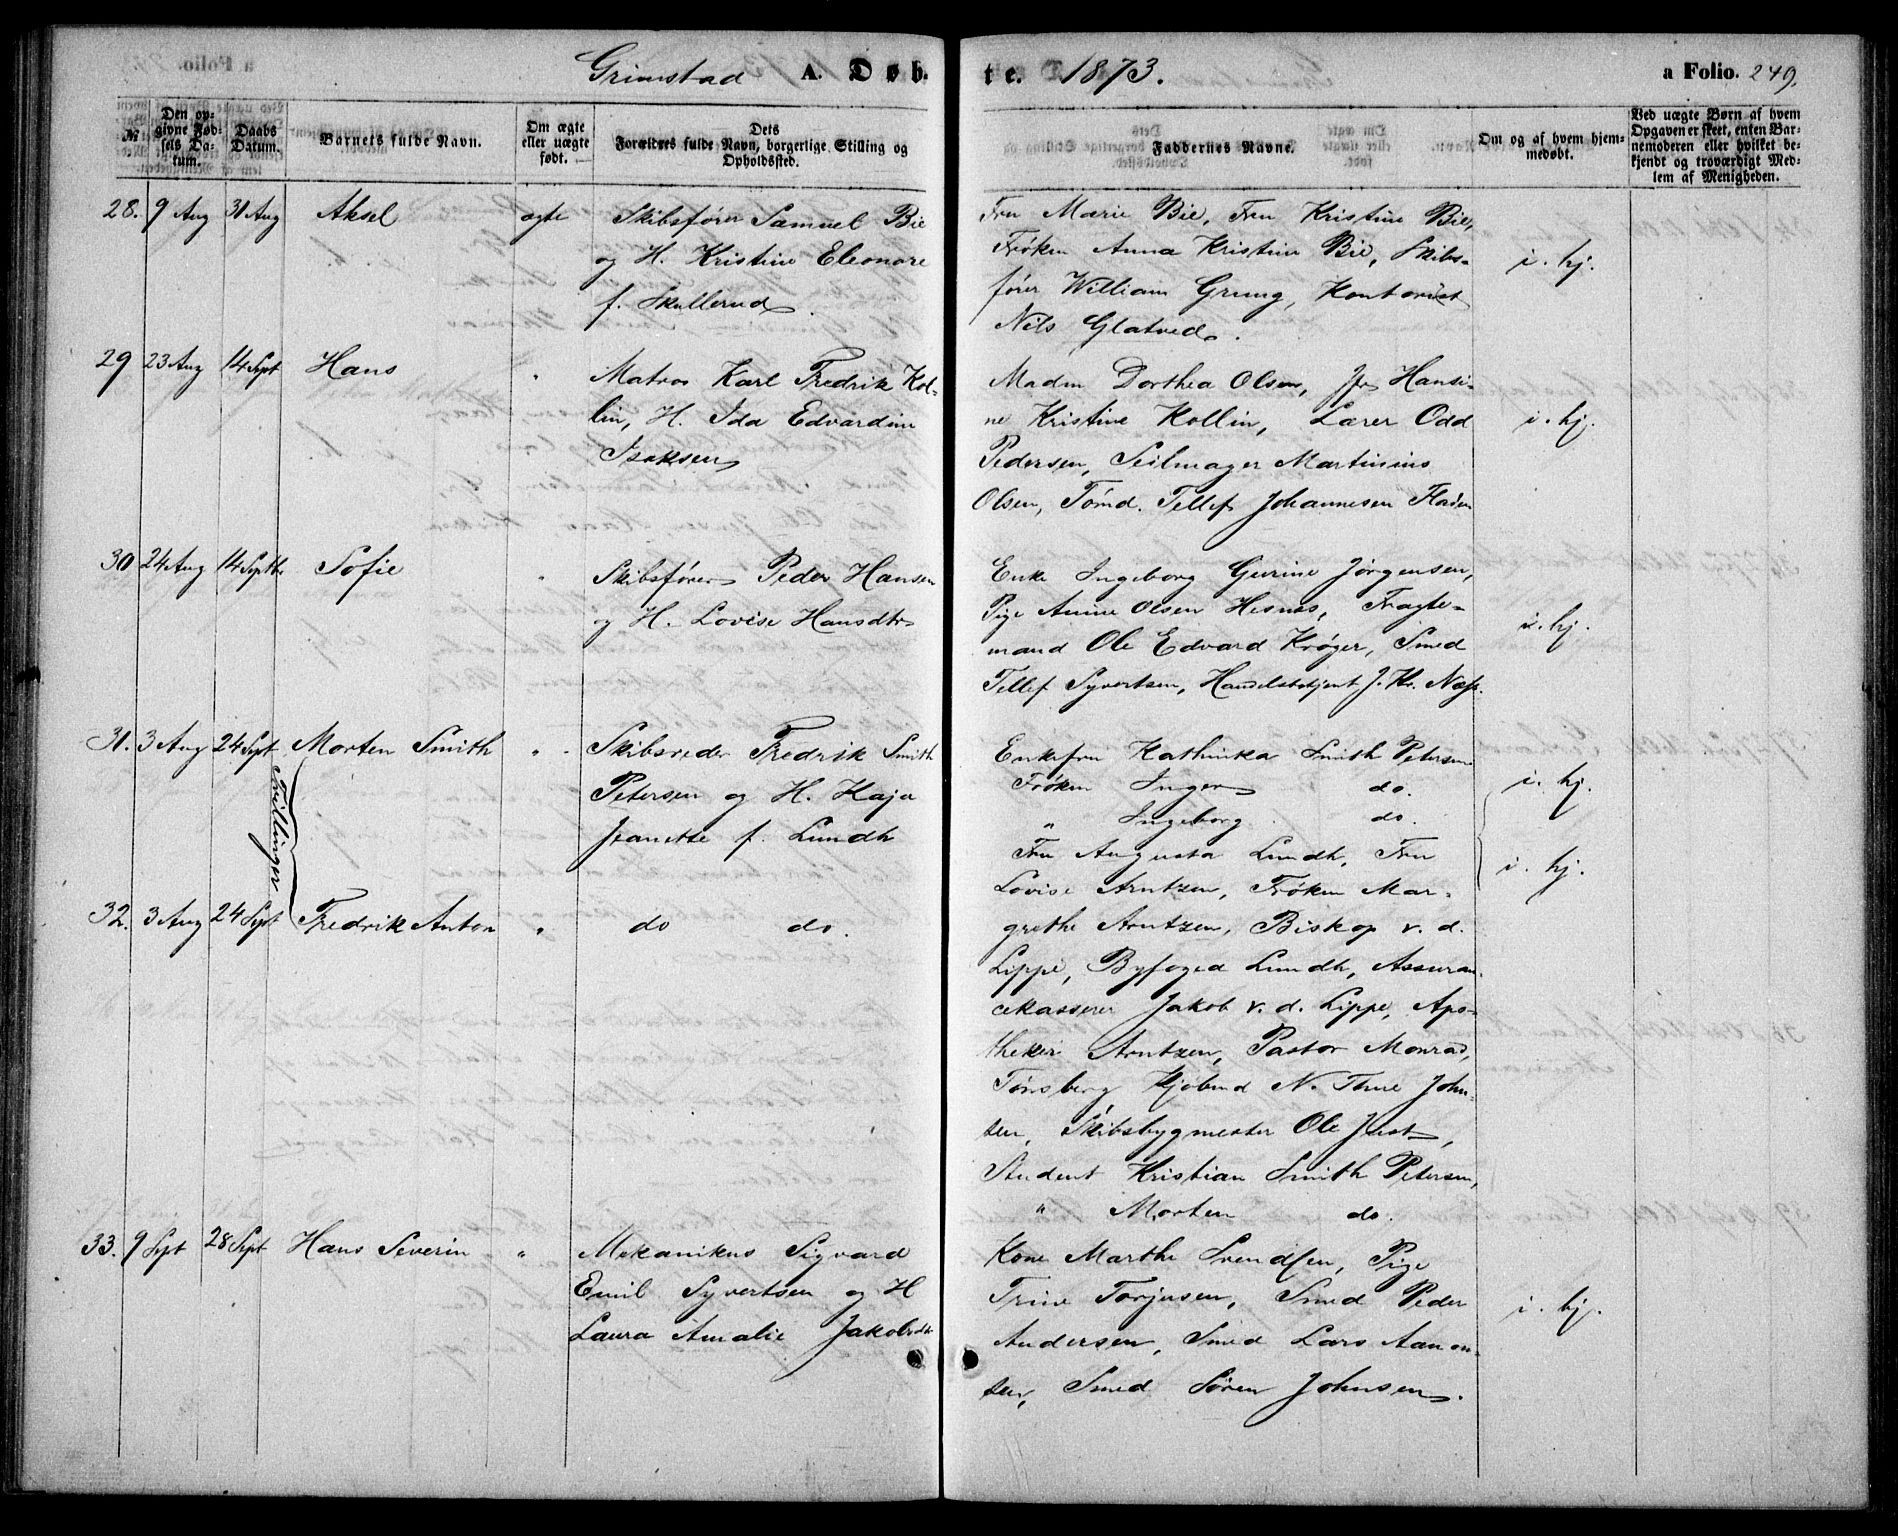 Grimstad A. Døb-
te. 1873.
a Folio. 249.
№
Den op-
givne Fød-
sels Da-
tum.
Daabs
Datum.
Barnets fulde Navn.
Om ægte
eller uægte
født.
Dets
Forældres fulde Navn, borgerlige Stilling og
Opholdssted.
Faddernes Navne.
Om og af hvem hjem-
medøbt.
Ved uægte Børn af hvem
Opgaven er skeet, enten Bar-
nemoderen eller hvilket be-
kjendt og troværdigt Med-
lem af Menigheden.
28. 9 Aug 31 Aug Aksel ægte Skibsfører Samuel Bie
og H. Kristine Eleonore
f. Skullerud.
Fru Marie Bie, Fru Kristine Bie,
Frøken Anna Kristine Bie, Skibs-
fører William Grung, Kontorist
Nils Glatved.
i. hj.
29 23 Aug 14 Sept Hans " Matros Karl Fredrik Kol-
lin, H. Ida Edvardine
Isaksen
Madm Dorthea Olsen, Jfr Hansi-
ne Kristine Kollin, Lærer Odd
Pedersen, Seilmager Martinius
Olsen, Tømd. Tellef Johannesen
i. hj.
30 24 Aug 14 Septbr Sofie " Skibsfører Peder Hansen
og H. Lovise Hansdtr
Enke Ingeborg Gurine Jørgensen,
Pige Anine Olsen Hesnes, Fragte-
mand Ole Edvard Krøger, Smed
Tellef Syvertsen, Handelsbetjent J. Kr. Næss.
i. hj.
31. 3 Aug 24 Sept Morten Smith " Skibsreder Fredrik Smith
Petersen og H. Kaja
Jeanette f. Lundh
Tvillinger
32. 3 Aug 24 Sept Fredrik Anton " do do.
Enkefru Kathinka Smith Petersen
Frøken Inger do.
" Ingeborg do.
Fru Augusta Lundh, Fru
Lovise Arntzen, Frøken Mar-
grethe Arntzen, Biskop v. d.
Lippe, Byfoged Lundh, Assuran-
cekasserer Jakob v. d. Lippe, Apo-
theker Arntzen, Pastor Monrad,
Tønsberg Kjøbmd N. Thue John-
sen, Skibsbygmester Ole Just,
Student Kristian Smith Petersen,
" Morten do.
i. hj.
i. hj.
33. 9 Sept 28 Sept Hans Severin " Mekanikus Sigvard
Emil Syvertsen og H
Laura Amalie Jakobsdtr
Kone Marthe Svendsen, Pige
Trine Torjusen, Smed Peder
Andersen, Smed Lars Aanon-
sen, Smed Søren Johnsen.
i. hj.